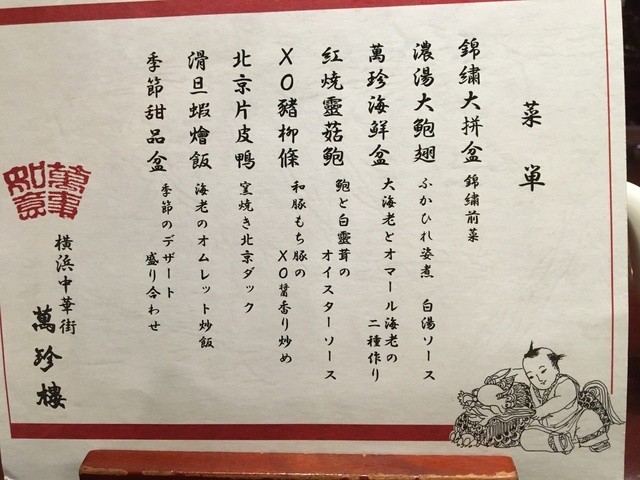 菜単
錦繡大拼盆 錦繡前菜
濃湯大鮑翅 ふかひれ姿煮 白湯ソース
萬珍海鮮盆 大海老とオマール海老の
二種作り
紅燒靈菇鮑 鮑と白靈茸の
オイスターソース
XO豬柳條 和豚もち豚の
XO醤香り炒め
北京片皮鴨 窯焼き北京ダック
滑旦蝦燴飯 海老のオムレット炒飯
季節甜品盆 季節のデザート
盛り合わせ
萬事
如意
横浜中華街
萬珍樓